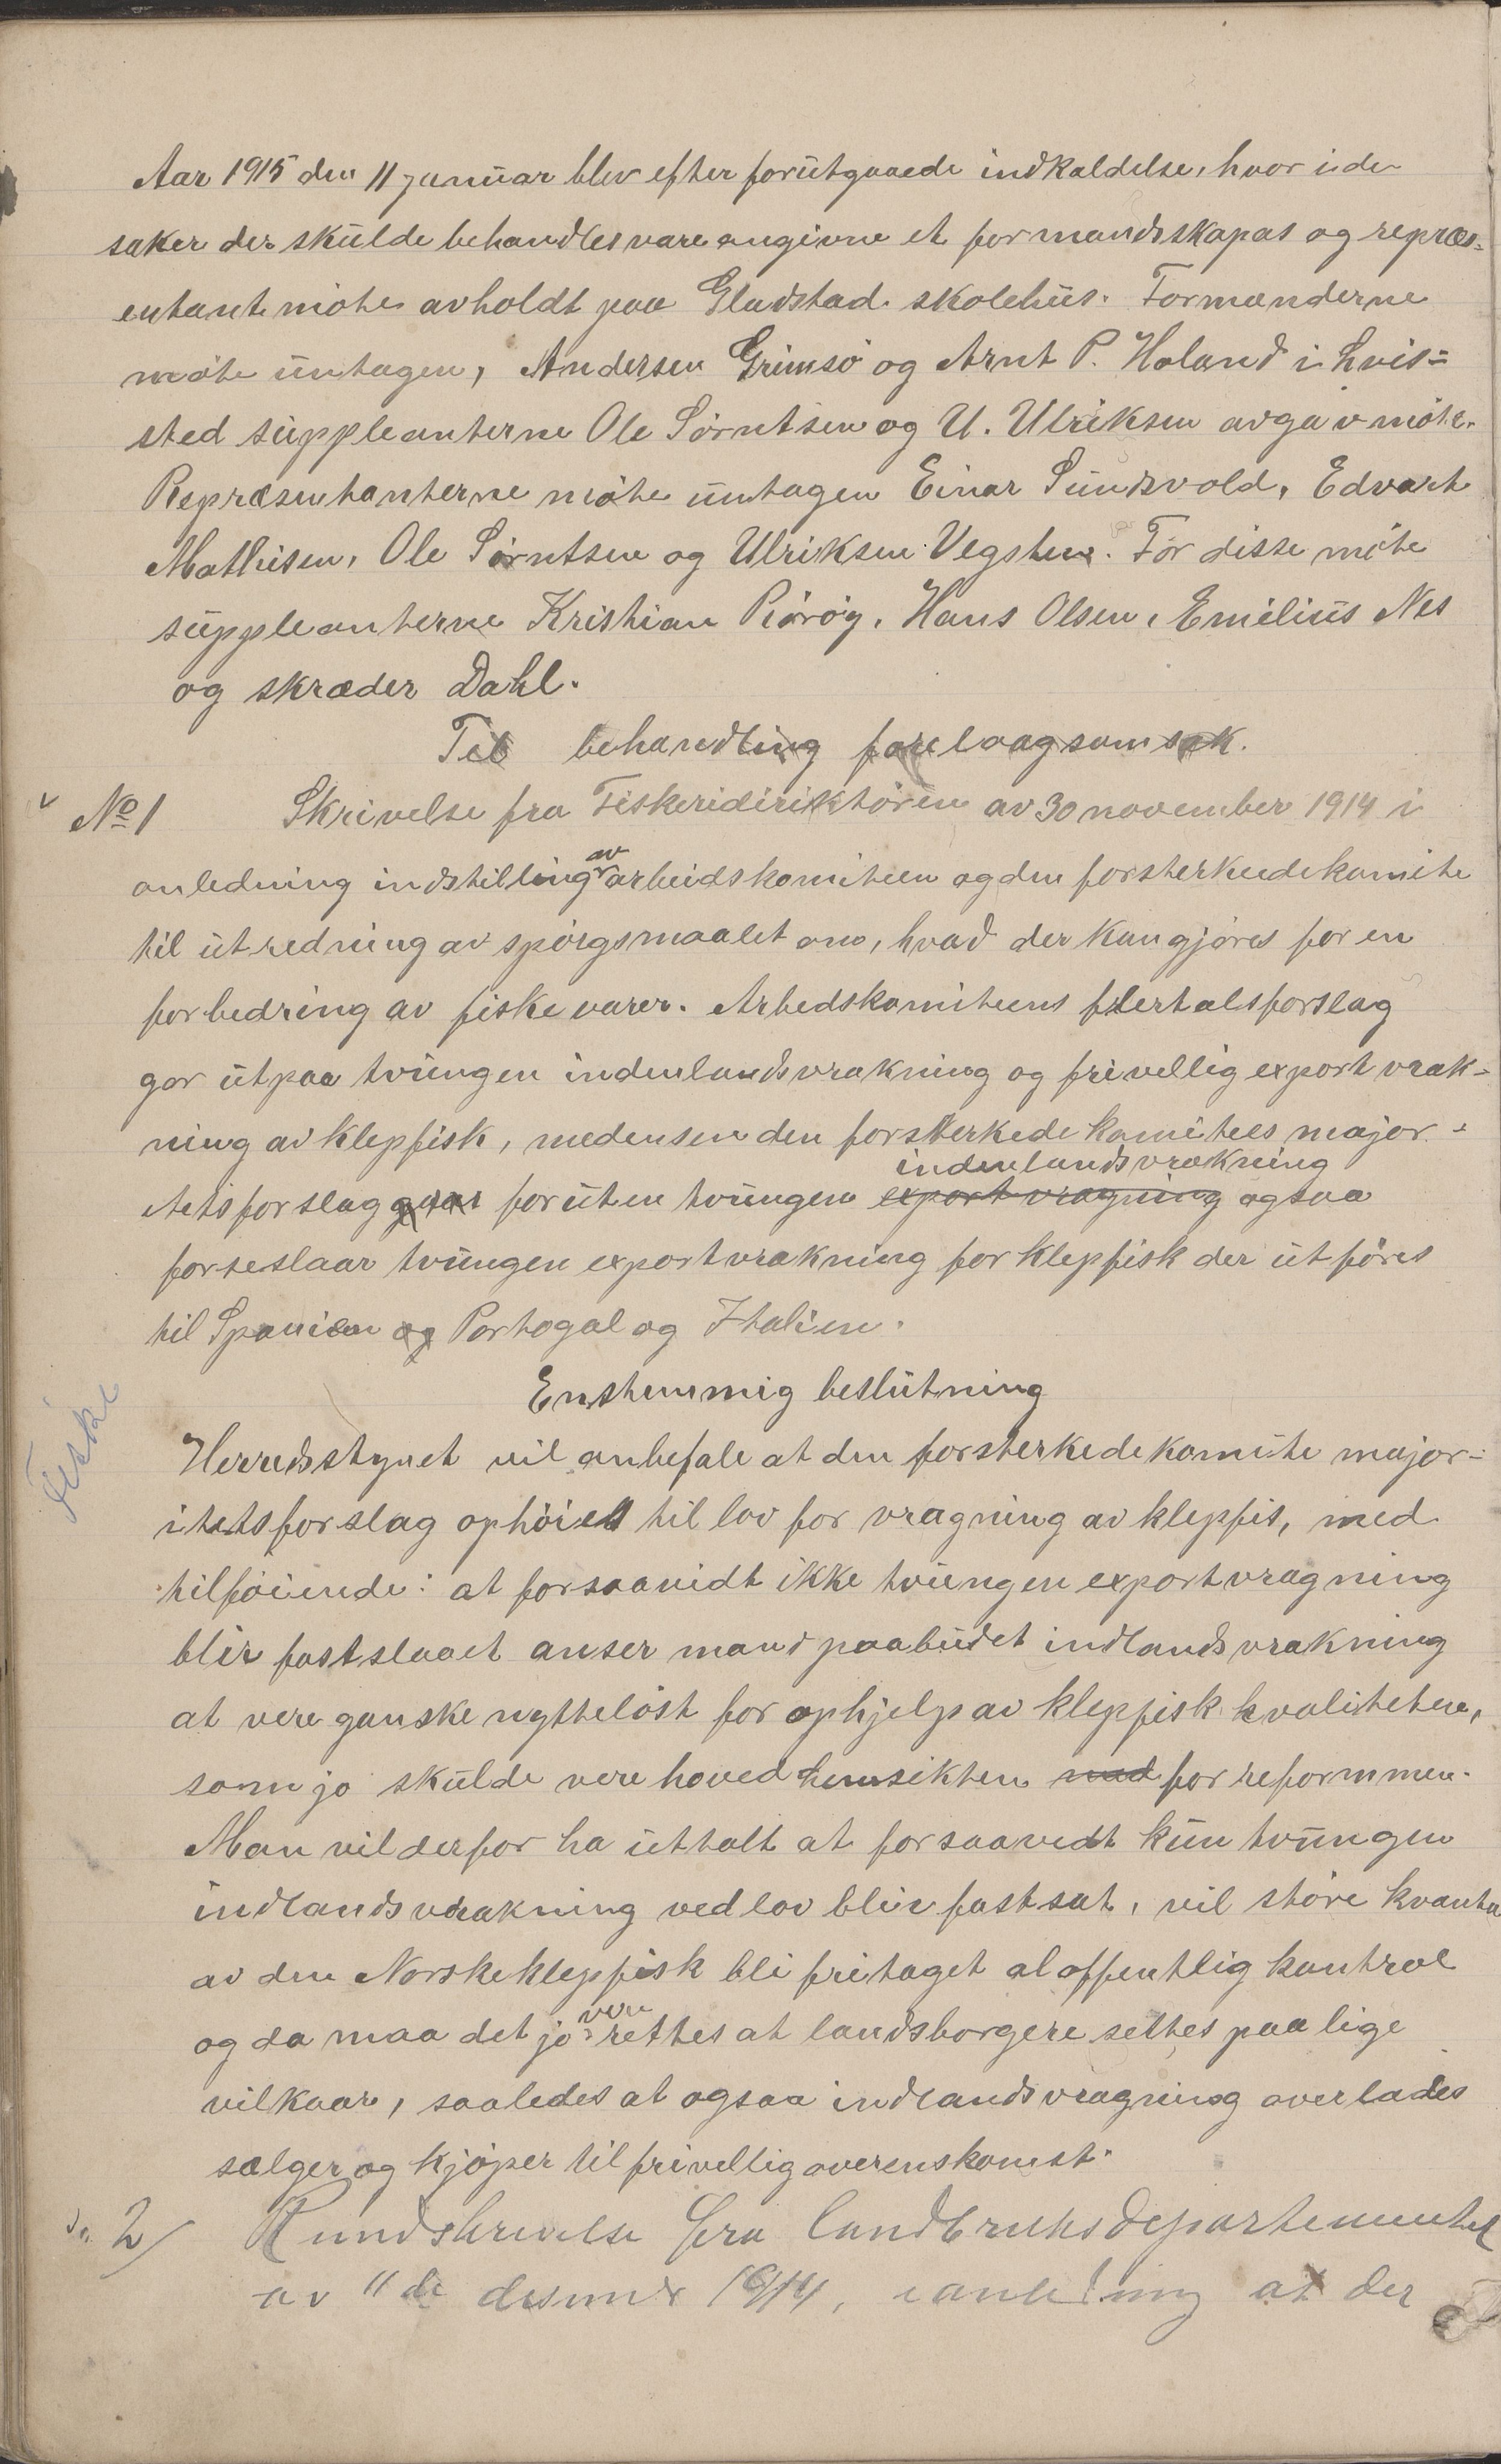 Aar 1915 den 11 januar blev efter forutgaaede indkaldelse, hvor i de
saker der skulde behandles vare angivne et formandsskapas og repræs=
entant möte avholdt paa Gladstad skolehus. Formænderne
möte untagen, Andersen Grimsö og Arnt P. Holand i hvis=
sted suppleanterne Ole Sörntsen og U. Ulriksen avgav möte.
Repræsentanterne möte untagen Einar Sundsvold, Edvart
Mathisen, Ole Sörntsen og Ulriksen Vegsten. For disse möte
suppleanterne Kristian Rörög, Hans Olsen, Emilius Nes
og skræder Dahl.
Til behandling forelaag som sak.
No 1 Skrivelse fra Fiskeridiriktören av 30 november 1914 i
anledning indstilling av arbeidskomiteen og den forsterkede komite
til utredning av spörgsmaalet om, hvad der kan gjöres for en
forbedring av fiskevarer. Arbedskomiteens flertalsforslag
gar ut paa tvungen indenlandsvrakning og frivellig export vrak-
ning av klepfisk, medensen den forsterkede komitees major-
itetsforslag foruten tvungen indenlandsvrakning export vragning ogsaa
foreslaar tvungen exportvrakning for klepfisk der utföres
til Spanien og Portogal og Italien.
Enstemmig beslutning
Fiske
Herredsstyret vil anbefale at den forsterkede komite major-
itetsforslag ophöies til lov for vragning av klepfis, med
tilföiende: at forsaavidt ikke tvungen exportvragning
blir fastslaaet anser mand paabudet indlandsvrakning
at vere ganske nyttelöst for ophjelp av klepfisk kvaliteten,
som jo skulde vere hoved hensikten med for reformmen.
Man vil derfor ha uttalt at forsaavedt kun tvungen
indlandsvrakning ved lov blir fastsat, vil störe kvanta
av den Norske klepfisk bli fritaget al offentlig kontrol
og da maa det jo vere rettes at landsborgere settes paa lige
vilkaar, saaledes at ogsaa indlandsvragning overlades
sælger og kjöper til frivellig overenskomst.
2/ Rundskrivelse fra Landbruksdepartementet
av 11 de desmbr 1914, i anledning at der